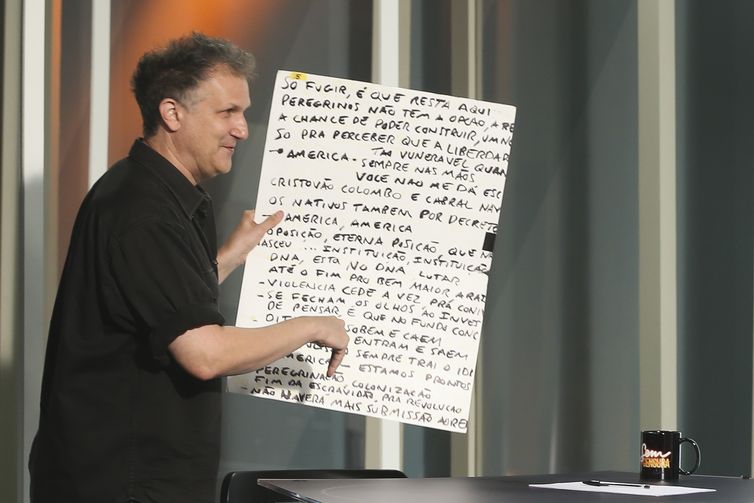 5
SO FUGIR, E QUE RESTA AQUI
PEREGRINOS NÃO TEM A OPÇÃO, A RE
A CHANCE DE PODER CONSTRUIR, UM NO
SO PRA PERCEBER QUE A LIBERDAD
AMERICA - TAO VUNERAVEL QUAN
SEMPRE NAS MÃOS
VOCE NAO ME DÁ ESC
CRISTOVÃO COLOMBO E CABRAL NAV
OS NATIVOS TAMBEM POR DECRETO
AMERICA, AMERICA
OPOSIÇÃO, ETERNA POSIÇÃO, QUE NA
NASCEU ... INSTITUIÇÃO, INSTITUIÇÃO
DNA, ESTA NO DNA LUTAR
ATÉ O FIM PRO BEM MAIOR A RAZ
- VIOLENCIA CEDE A VEZ, PRÁ CONI
- SE FECHAM OS OLHOS AO INVES
DE PENSAR É QUE NO FUNDO CONC
SOBEM E CAEM
ENTRAM E SAEM
SEMPRE TRAI O IDE
AMERICA - ESTAMOS PRONTOS
PEREGRINAÇÃO COLONIZAÇÃO
FIM DA ESCRAVIDÃO, PRA REVOLUÇÃO
- NÃO HAVERA MAIS SUBMISSÃO AO REI
Sem
CENSURA